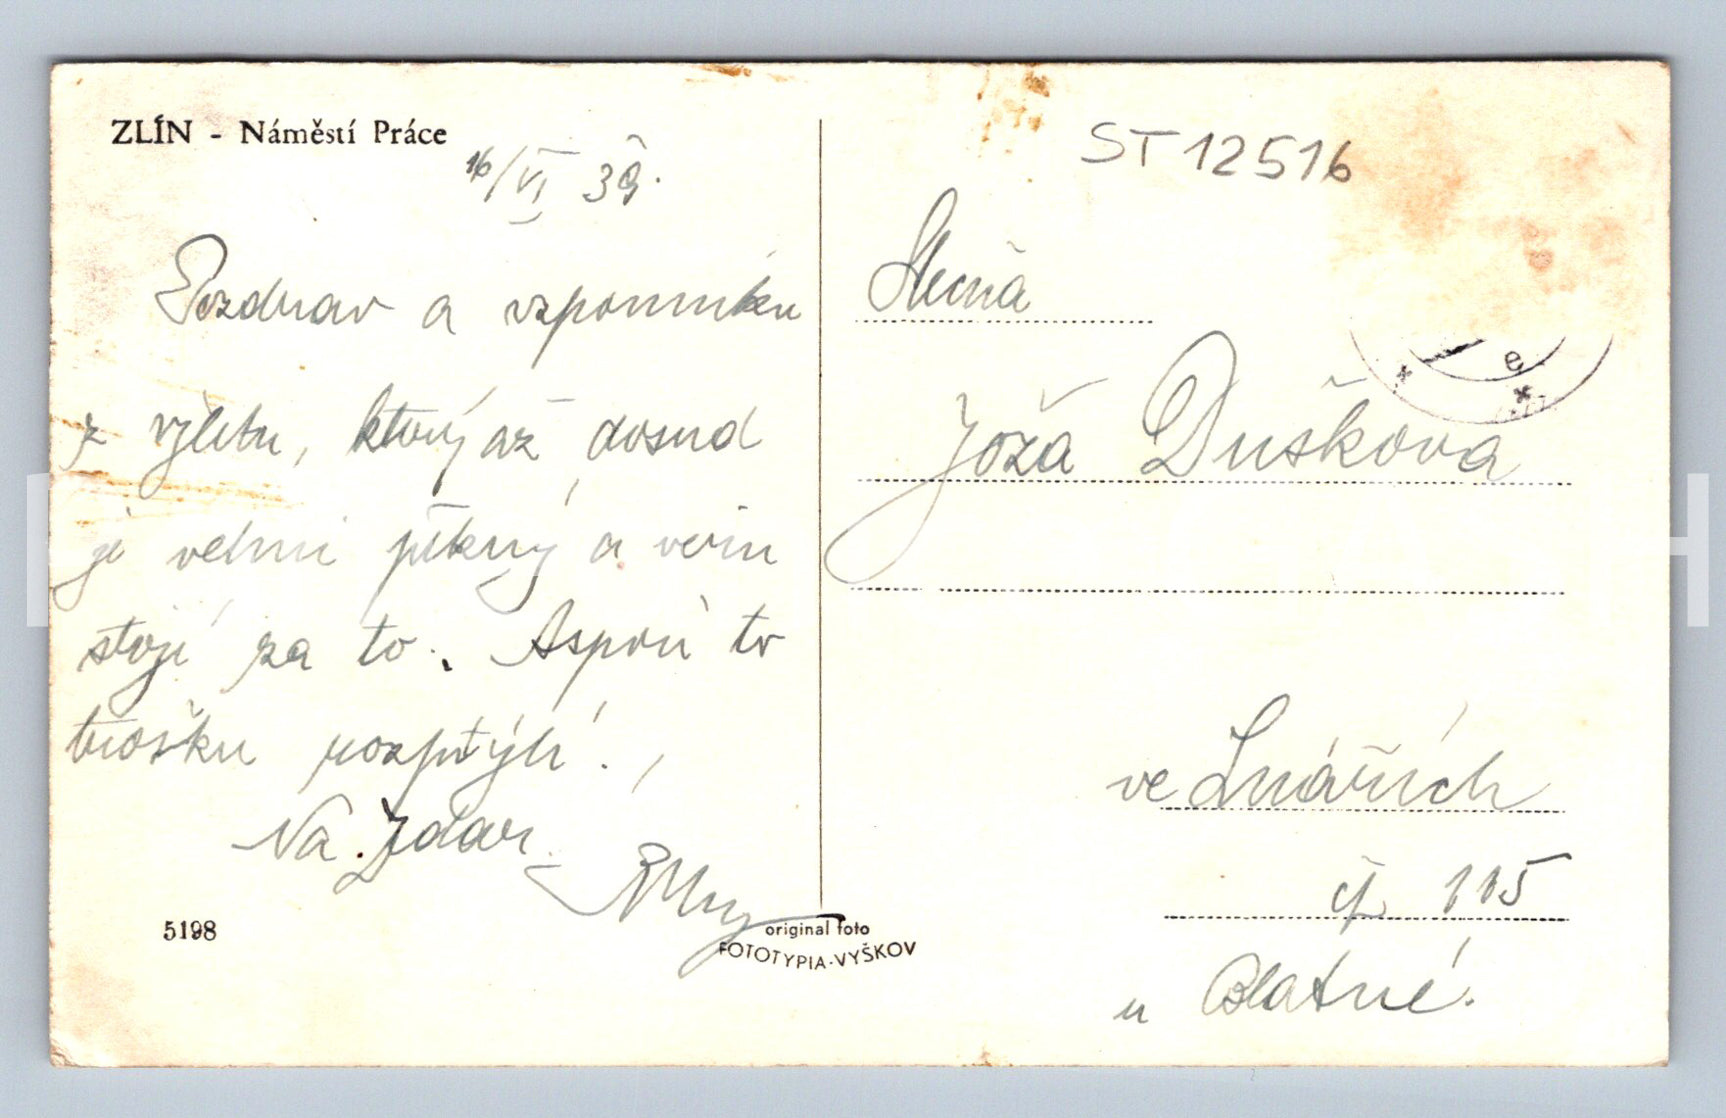 ZLÍN - Náměstí Práce
16/VI 39.
Pozdrav a vzpomínku
z výletu, který až dosud
je velmi pěkný a věřím
stojí za to. Aspoň to
trošku rozptýlí.
Na Zdar.
5198
original foto
FOTOTYPIA-VYŠKOV
ST 12516
Slečna
Joža Dušková
ve Lnářích
čp 115
u Blatné.
e